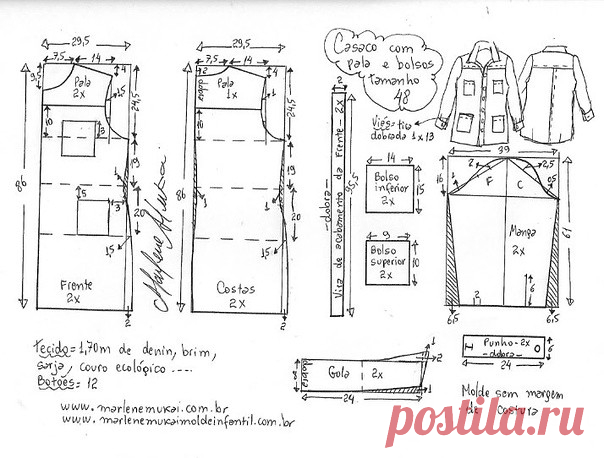 Casaco com
pala e bolsos
tamanho
48
29,5
7,5
14
9,5
4
Pala
2x
15
24,5
10
3
86
19
1
5
3
20
1,5
Frente
2x
2
Marlene Mukai
29,5
7,5
14
2
4
dobra
Pala
1x
1
24,5
10
86
19
1
1
20
1,5
Costas
2x
2
2
Vira de acabamento da Frente - 2x
-dobra-
85,5
Viés=tira
dobrada 1x13
14
Bolso
inferior
2x
15
9
Bolso
superior
2x
10
39
16
2
2,5
F
C
0,5
1
Manga
2x
61
6
2
6,5
6,5
Punho-2x
-dobra-
6
24
dobra
8
Gola
2x
1
2
1
24
Molde sem margem
de costura
Tecido=1,70m de denin, brim,
sarja, couro ecológico ....
Botões=12
www.marlenemukai.com.br
www.marlenemukaimoldeinfantil.com.br
postila.ru